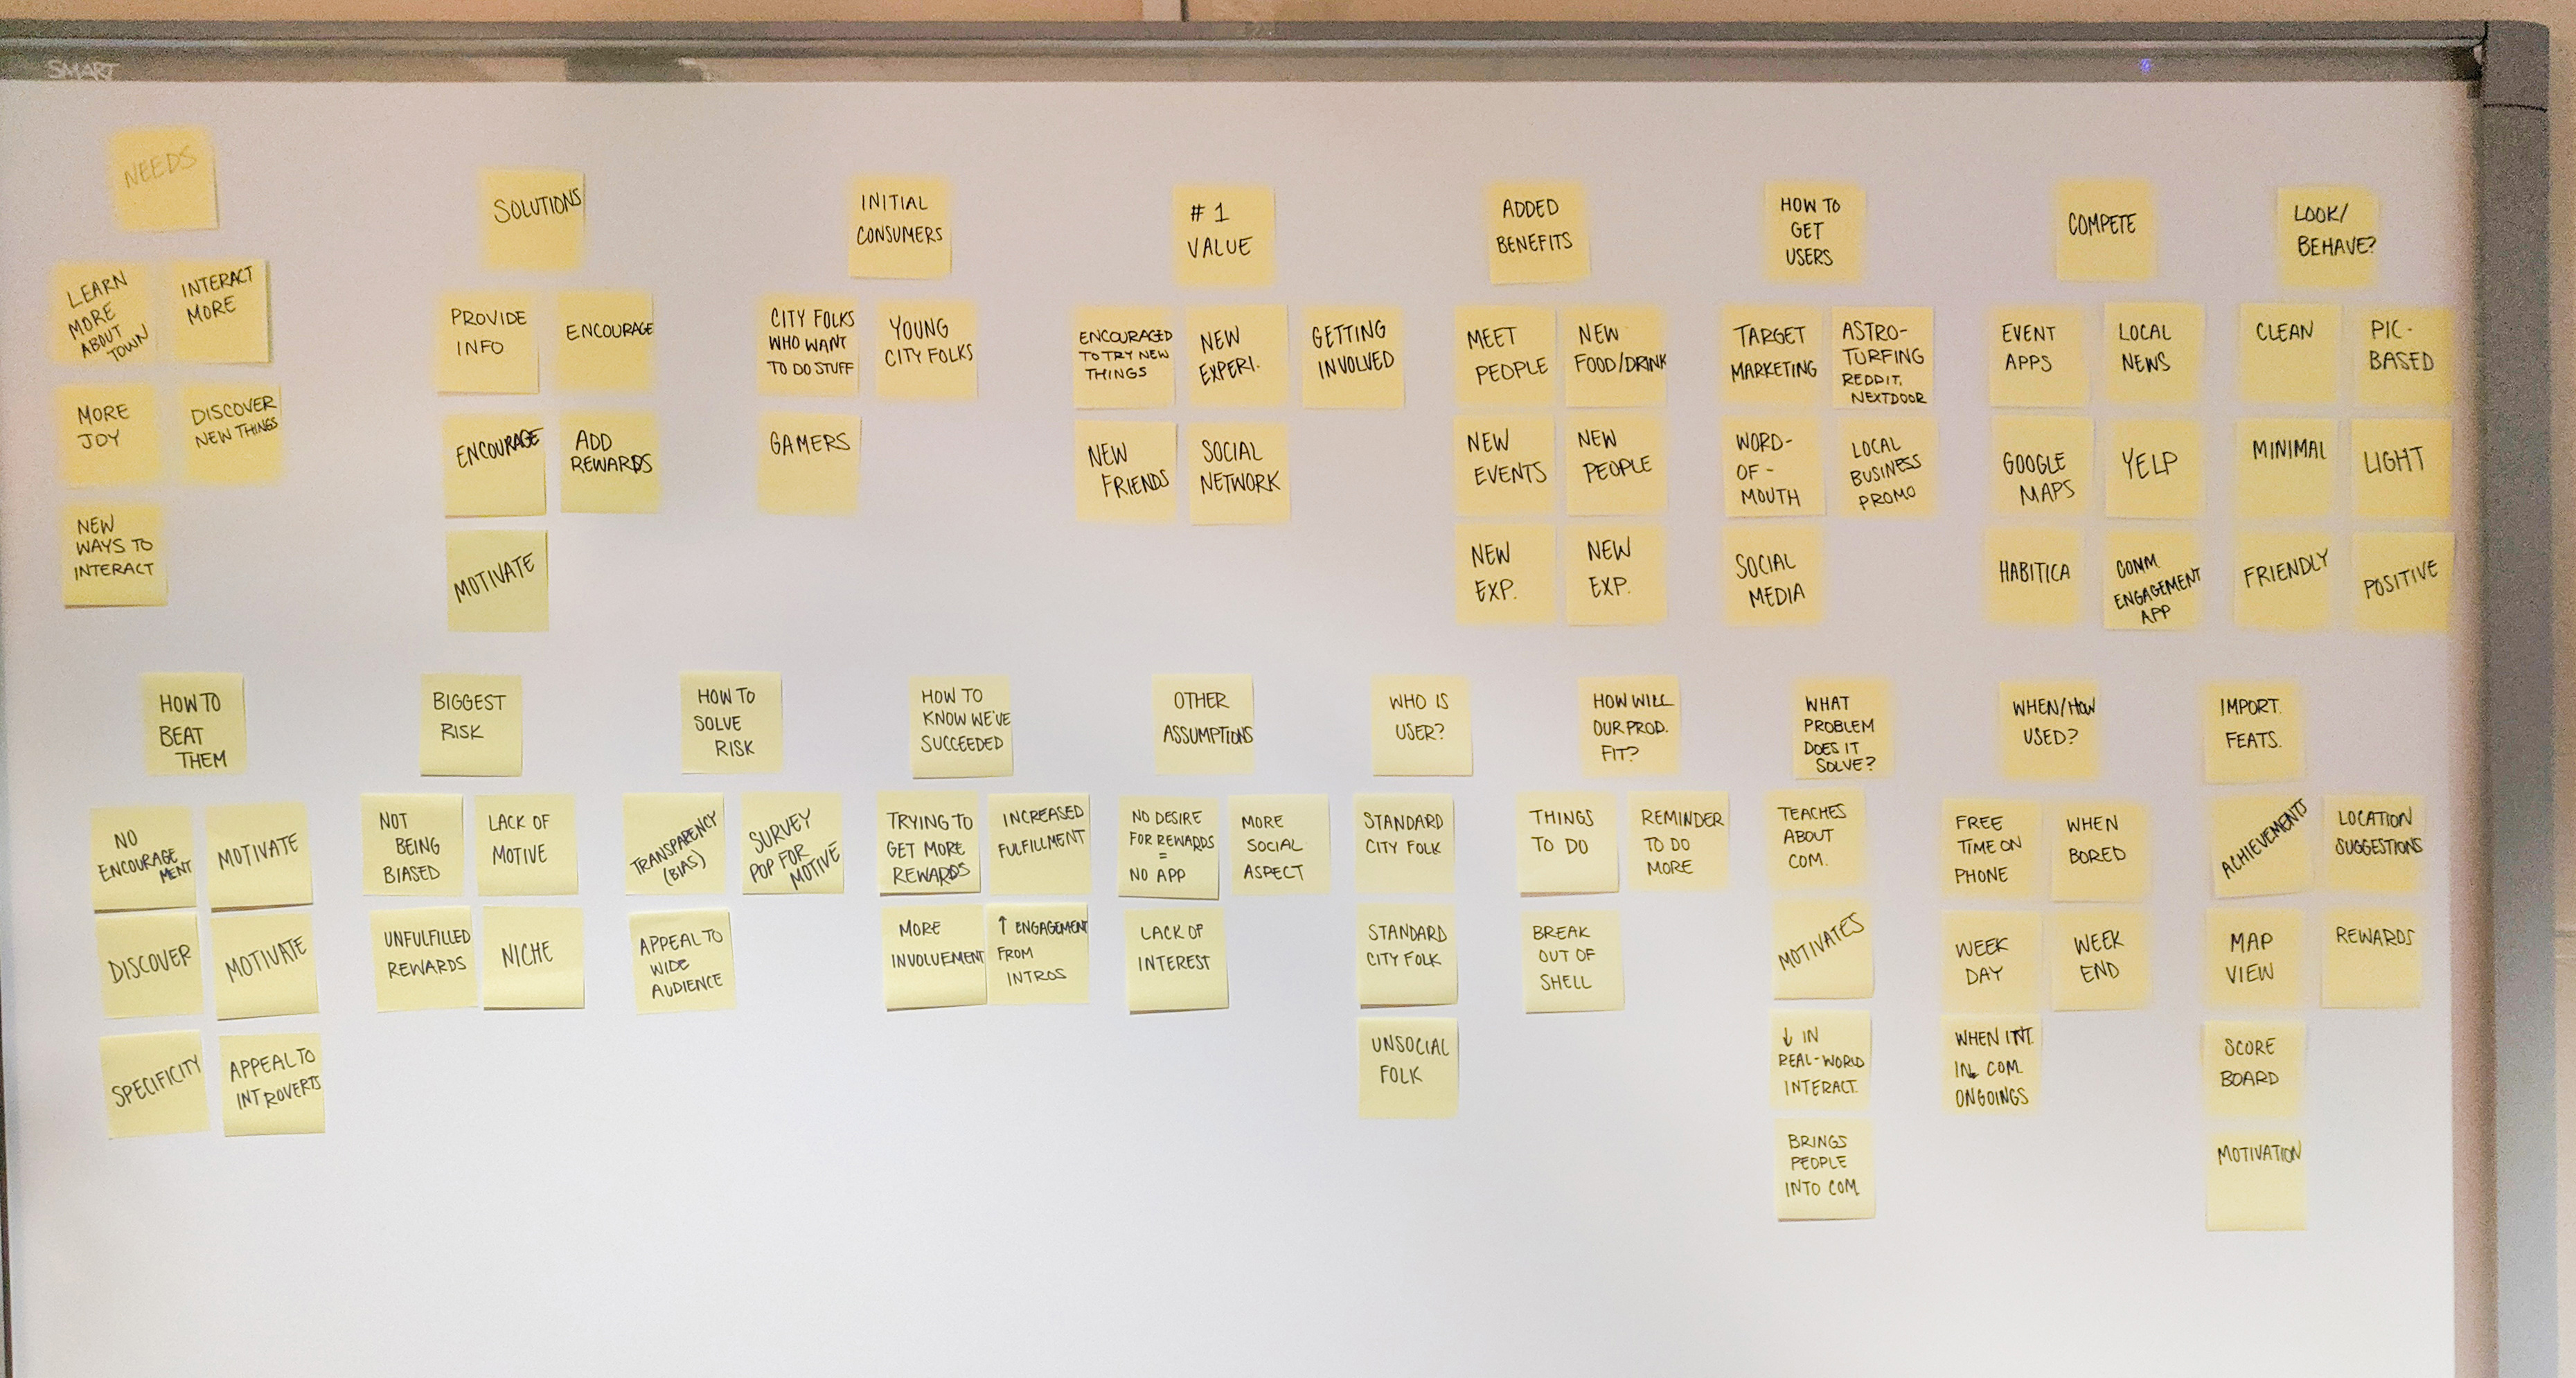 SMART
NEEDS
LEARN
MORE
ABOUT
TOWN
INTERACT
MORE
MORE
JOY
DISCOVER
NEW THINGS
NEW
WAYS TO
INTERACT
SOLUTIONS
PROVIDE
INFO
ENCOURAGE
ENCOURAGE
ADD
REWARDS
MOTIVATE
INITIAL
CONSUMERS
CITY FOLKS
WHO WANT
TO DO STUFF
YOUNG
CITY FOLKS
GAMERS
# 1
VALUE
ENCOURAGED
TO TRY NEW
THINGS
NEW
EXPERI.
GETTING
INVOLVED
NEW
FRIENDS
SOCIAL
NETWORK
ADDED
BENEFITS
MEET
PEOPLE
NEW
FOOD/DRINK
NEW
EVENTS
NEW
PEOPLE
NEW
EXP.
NEW
EXP.
HOW TO
GET
USERS
TARGET
MARKETING
ASTRO-
TURFING
REDDIT,
NEXTDOOR
WORD-
OF-
MOUTH
LOCAL
BUSINESS
PROMO
SOCIAL
MEDIA
COMPETE
EVENT
APPS
LOCAL
NEWS
GOOGLE
MAPS
YELP
HABITICA
COMM.
ENGAGEMENT
APP
LOOK/
BEHAVE?
CLEAN
PIC-
BASED
MINIMAL
LIGHT
FRIENDLY
POSITIVE
HOW TO
BEAT
THEM
NO
ENCOURAGE
MENT
MOTIVATE
DISCOVER
MOTIVATE
SPECIFICITY
APPEAL TO
INTROVERTS
BIGGEST
RISK
NOT
BEING
BIASED
LACK OF
MOTIVE
UNFULFILLED
REWARDS
NICHE
HOW TO
SOLVE
RISK
TRANSPARENCY
(BIAS)
SURVEY
POP FOR
MOTIVE
APPEAL TO
WIDE
AUDIENCE
HOW TO
KNOW WE'VE
SUCCEEDED
TRYING TO
GET MORE
REWARDS
INCREASED
FULFILLMENT
MORE
INVOLVEMENT
↑ ENGAGEMENT
FROM
INTROS
OTHER
ASSUMPTIONS
NO DESIRE
FOR REWARDS
=
NO APP
MORE
SOCIAL
ASPECT
LACK OF
INTEREST
WHO IS
USER?
STANDARD
CITY FOLK
STANDARD
CITY FOLK
UNSOCIAL
FOLK
HOW WILL
OUR PROD.
FIT?
THINGS
TO DO
REMINDER
TO DO
MORE
BREAK
OUT OF
SHELL
WHAT
PROBLEM
DOES IT
SOLVE?
TEACHES
ABOUT
COM.
MOTIVATES
↓ IN
REAL-WORLD
INTERACT.
BRINGS
PEOPLE
INTO COM.
WHEN/HOW
USED?
FREE
TIME ON
PHONE
WHEN
BORED
WEEK
DAY
WEEK
END
WHEN INT.
IN COM.
ONGOINGS
IMPORT.
FEATS.
ACHIEVEMENTS
LOCATION
SUGGESTIONS
MAP
VIEW
REWARDS
SCORE
BOARD
MOTIVATION